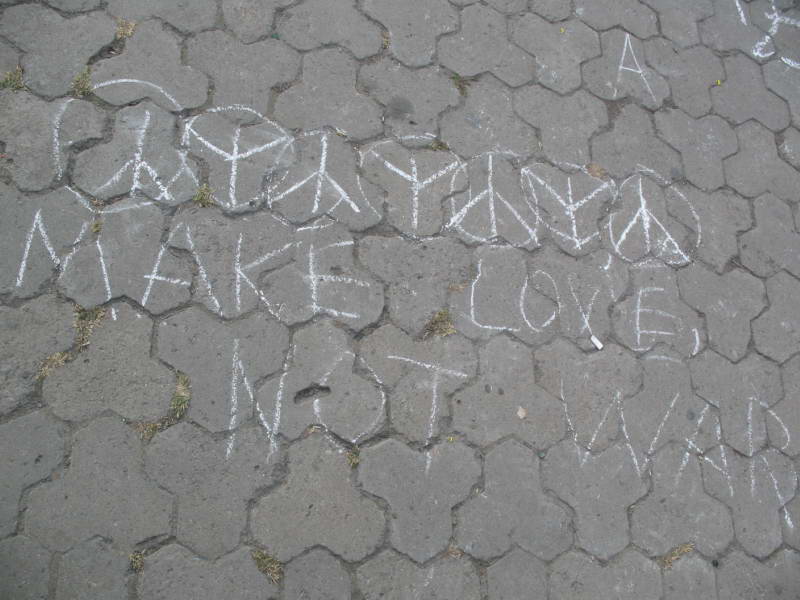 A
MAKE LOVE,
NOT WAR